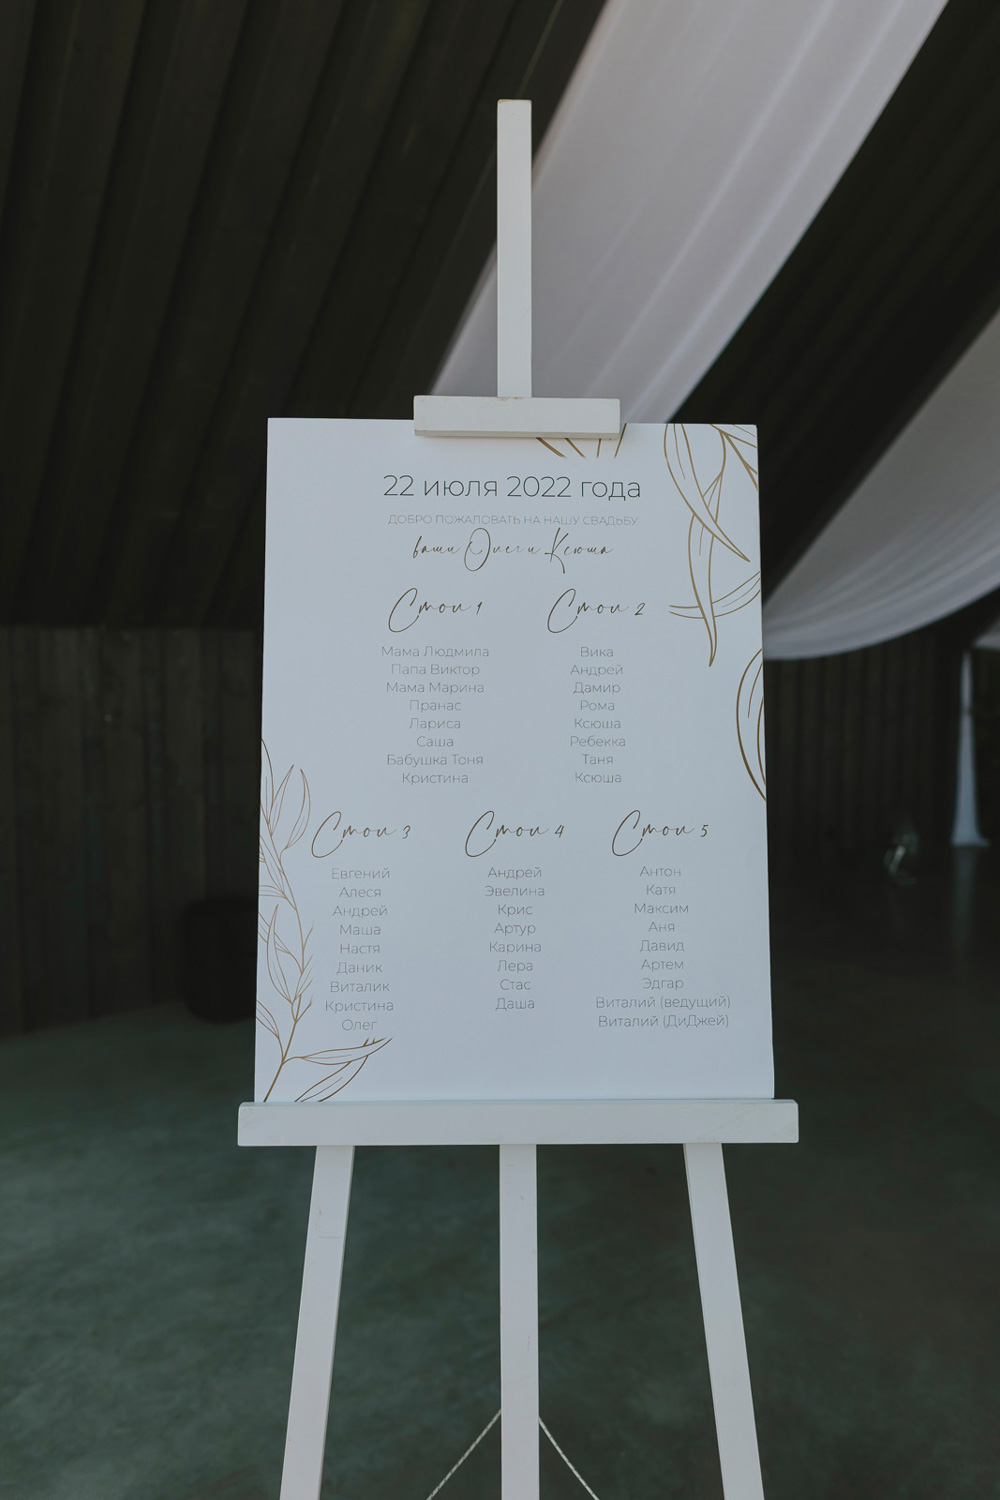 22 июля 2022 года
ДОБРО ПОЖАЛОВАТЬ НА НАШУ СВАДЬБУ
ваши Олег и Ксюша
Стол 1
Мама Людмила
Папа Виктор
Мама Марина
Пранас
Лариса
Саша
Бабушка Тоня
Кристина
Стол 2
Вика
Андрей
Дамир
Рома
Ксюша
Ребекка
Таня
Ксюша
Стол 3
Евгений
Алеся
Андрей
Маша
Настя
Даник
Виталик
Кристина
Олег
Стол 4
Андрей
Эвелина
Крис
Артур
Карина
Лера
Стас
Даша
Стол 5
Антон
Катя
Максим
Аня
Давид
Артем
Эдгар
Виталий (ведущий)
Виталий (ДиДжей)